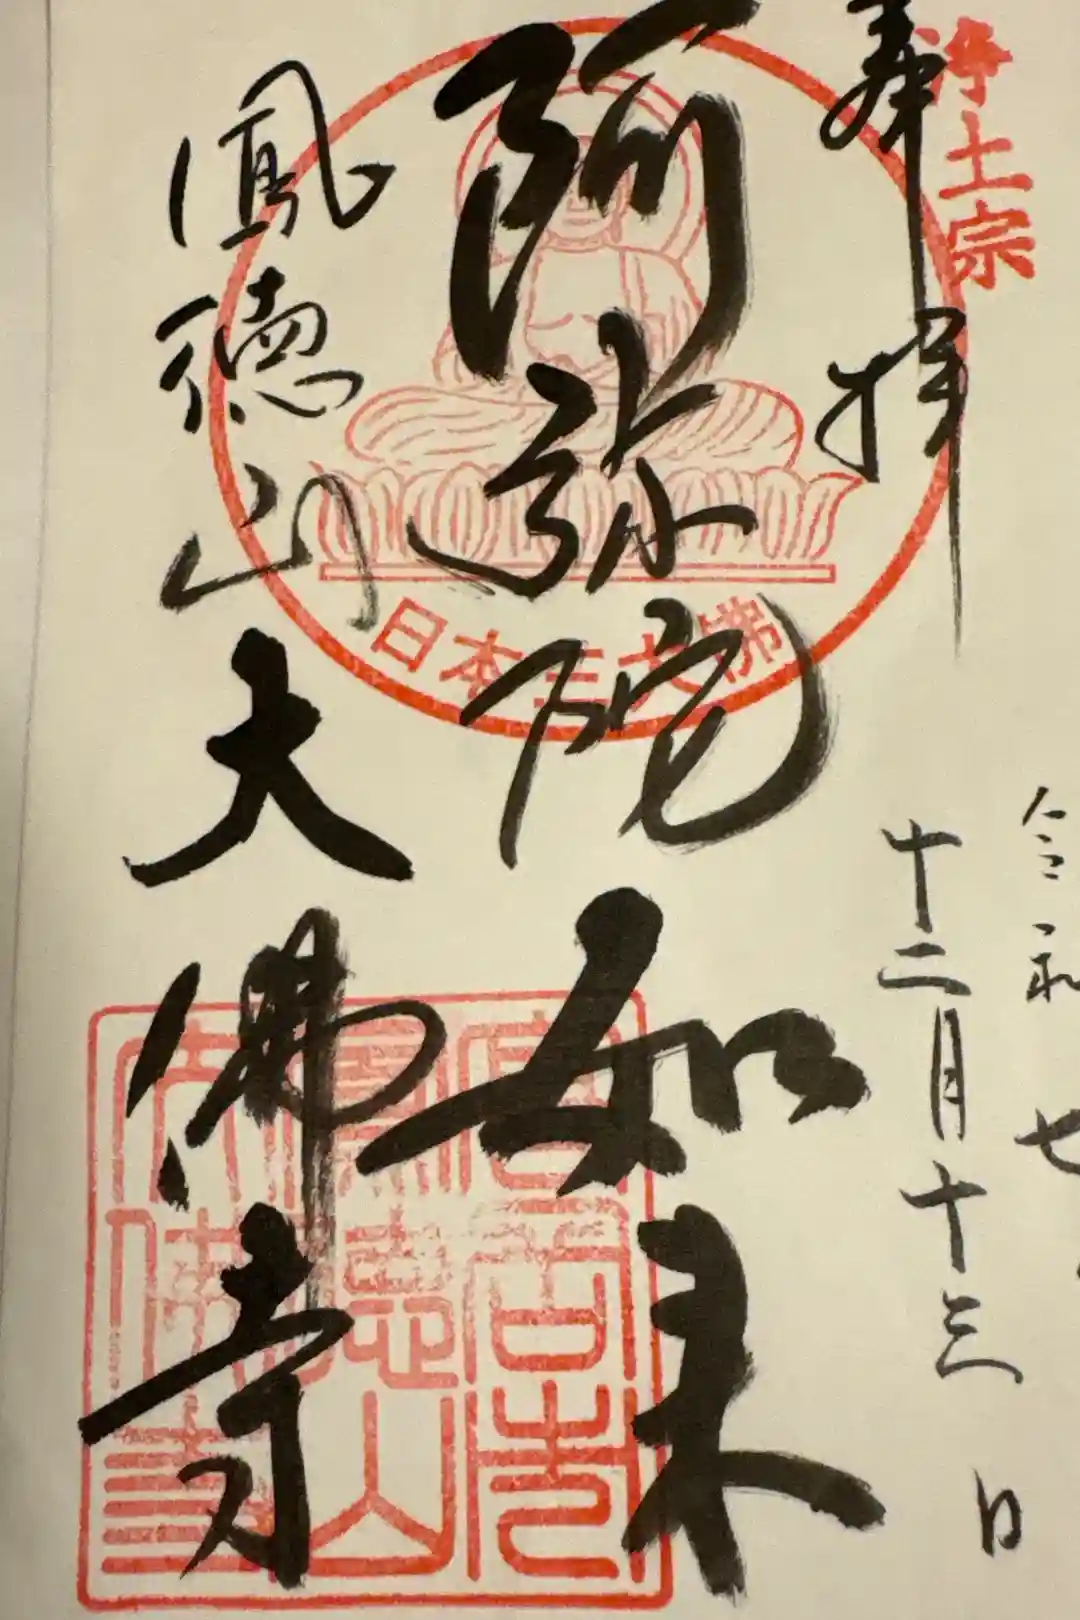 浄土宗
奉拝
令和七
十二月十三日
阿弥陀如来
日本三大佛
鳳徳山大佛寺